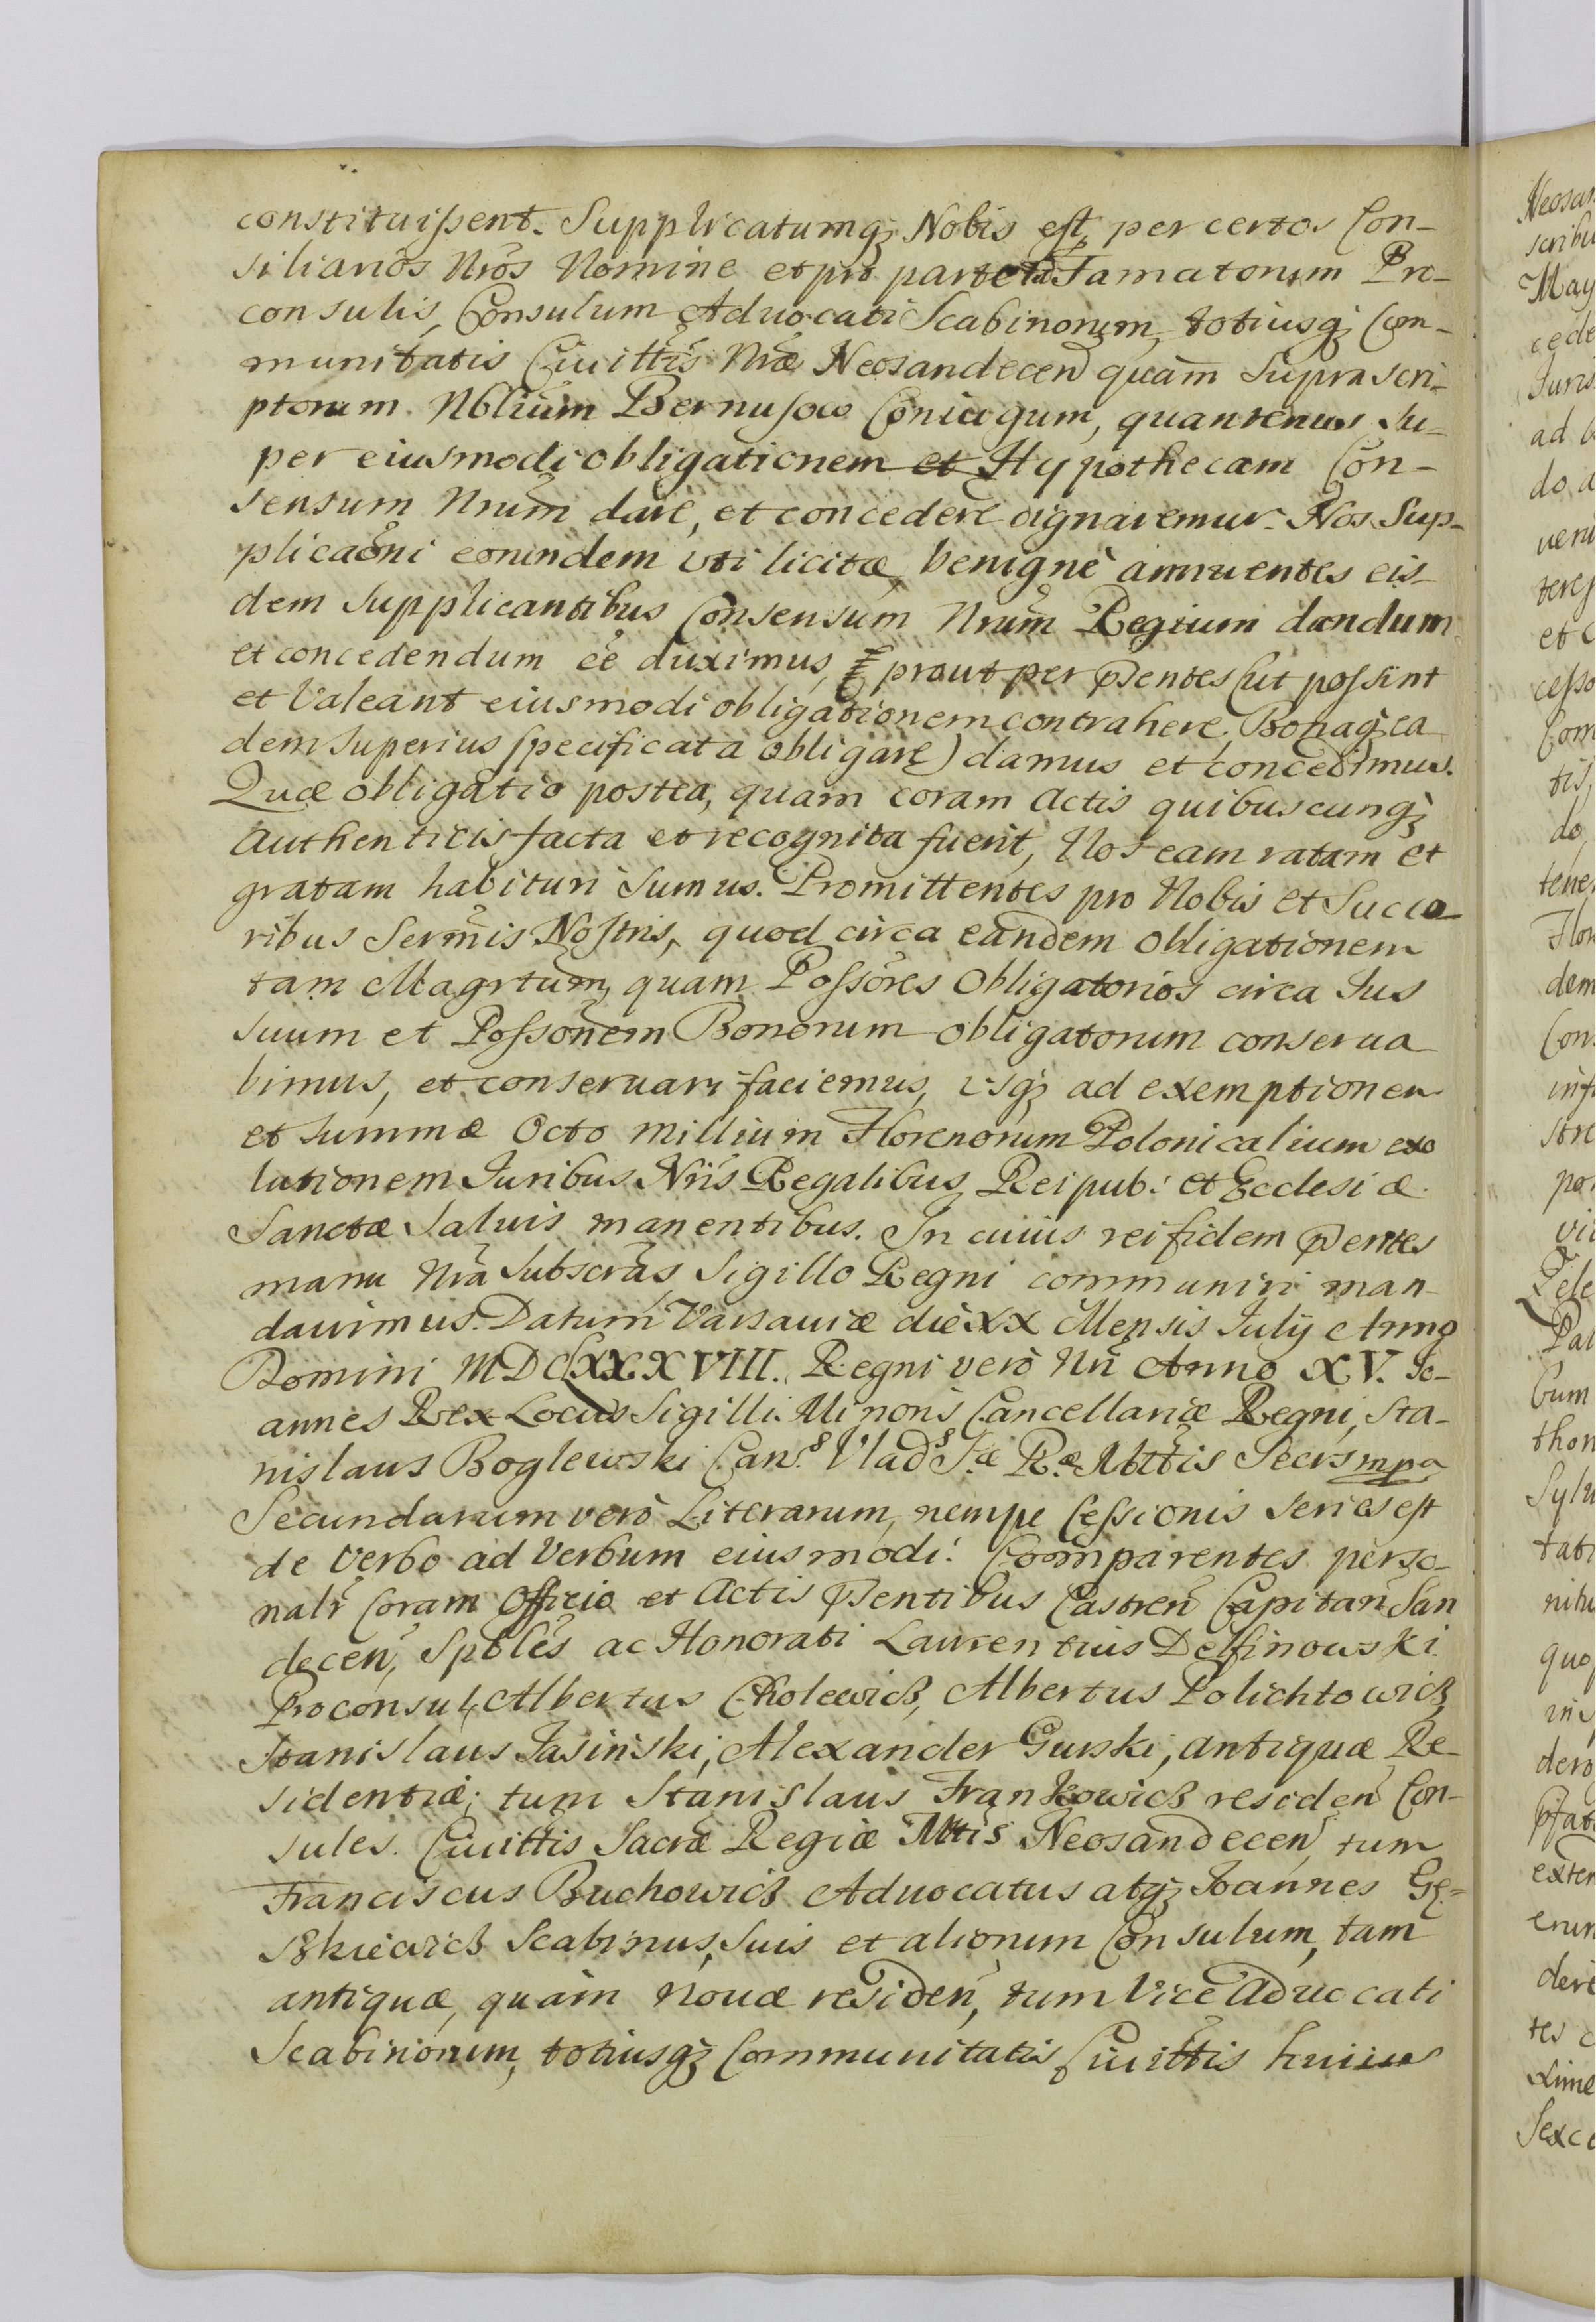 constituissent. Supplicatumq; Nobis est, per certos Con-
siliarios Nr̃os Nomine et pro parte tã Famatorum Pro-
consulis, Consulum Aduocati Scabinorum, totiusq; Com-
munitatis Ciuittis Nr̃æ Neosandecen̄ quàm Suprascri-
ptorum Nblium Bernusow Coniugum, quantenus Su-
per eiusmodi obligationem et Hypothecam Con-
sensum Nrum̃ dare, et concedere dignaremur. Nos Sup-
plicaõni eorundem vti licitæ benignè annuentes eis-
dem Supplicantibus Consensum Nrum̃ Regium dandum
et concedendum ee᷉ duximus, prout per p̄sentes (ut possint
et Valeant eiusmodi obligationem contrahere, Bonaq; ea
dem superius specificata obligare) damus et concedimus.
Quæ obligatio postea, quam coram Actis quibuscunq;
Authenticis facta et recognita fuerit, Nos eam ratam et
gratam habituri sumus. Promittentes pro Nobis et Succo-
ribus Serm̃is Nostris, quod circa eandem obligationem
tam Magrtum, quam Possores Obligatorios circa Jus
suum et Possonem Bonorum obligatorum conserua
bimus, et conseruari faciemus, vsq; ad exemptionem
et Summæ Octo millium Florenorum Polonicalium exo
lutionem Juribus Nr̃is Regalibus Reipub: et Ecclesiæ
Sanctæ Saluis manentibus. In cuius rei fidem p̄sentes
manu Nrã Subscrãs Sigillo Regni communiri man-
dauimus. Datum Varsauiæ die XX Mensis July Anno
Domini MDCLXXXVIII. Regni verò Nri Anno XV. Jo-
annes Rex Locus Sigilli Minoris Cancellariæ Regni, Sta-
nislaus Boglewski Can.s Vlad.s S.æ R.æ Mttis Secrs mpa
Secundarum verò Literarum, nempe Cessionis Series est
de Verbo ad Verbum eiusmodi: Comparentes perso-
nalr̃ Coram Officio et Actis p̄sentibus Castren̄ Capitan̄ San
decen̄, Spbles ac Honorati Laurentius Delfinowski
Proconsul, Albertus Cholewicz, Albertus Polichtowicz,
Stanislaus Jasinski, Alexander Gurski, antiquæ Re-
sidentiæ; tum Stanislaus Frankowicz residen̄ Con-
sules. Ciuittis Sacræ Regiæ Mttis Neosandecen̄, tum
Franciscus Buchowicz Aduocatus atq; Joannes Gę-
szkiewicz Scabinus, Suis et aliorum Consulum, tam
antiquæ, quàm nouæ residen̄, tum Vice Aduocati
Scabinorum, totiusq; Communitatis Ciuittis huius